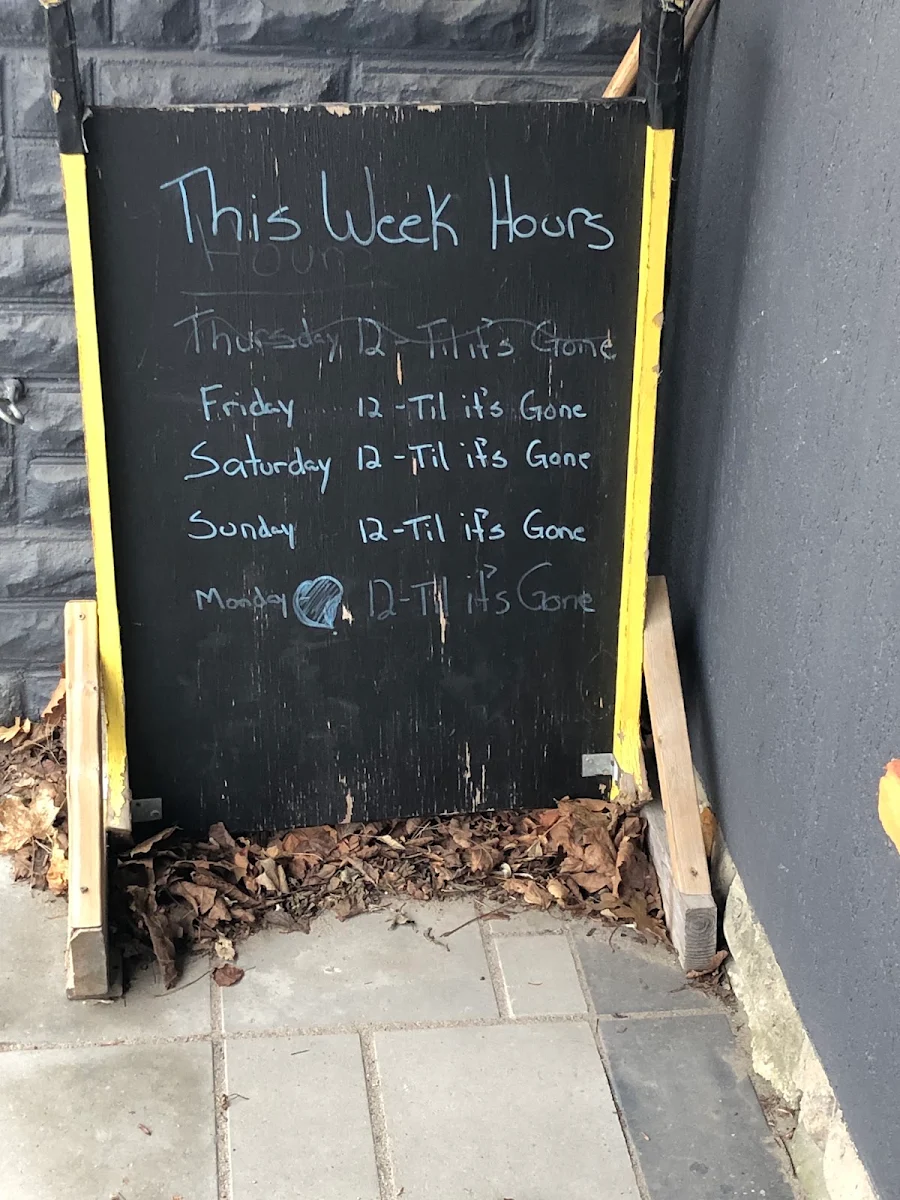 This Week Hours
Hours
Thursday 12-Til it's Gone
Friday 12-Til it's Gone
Saturday 12-Til it's Gone
Sunday 12-Til it's Gone
Monday 12-Til it's Gone